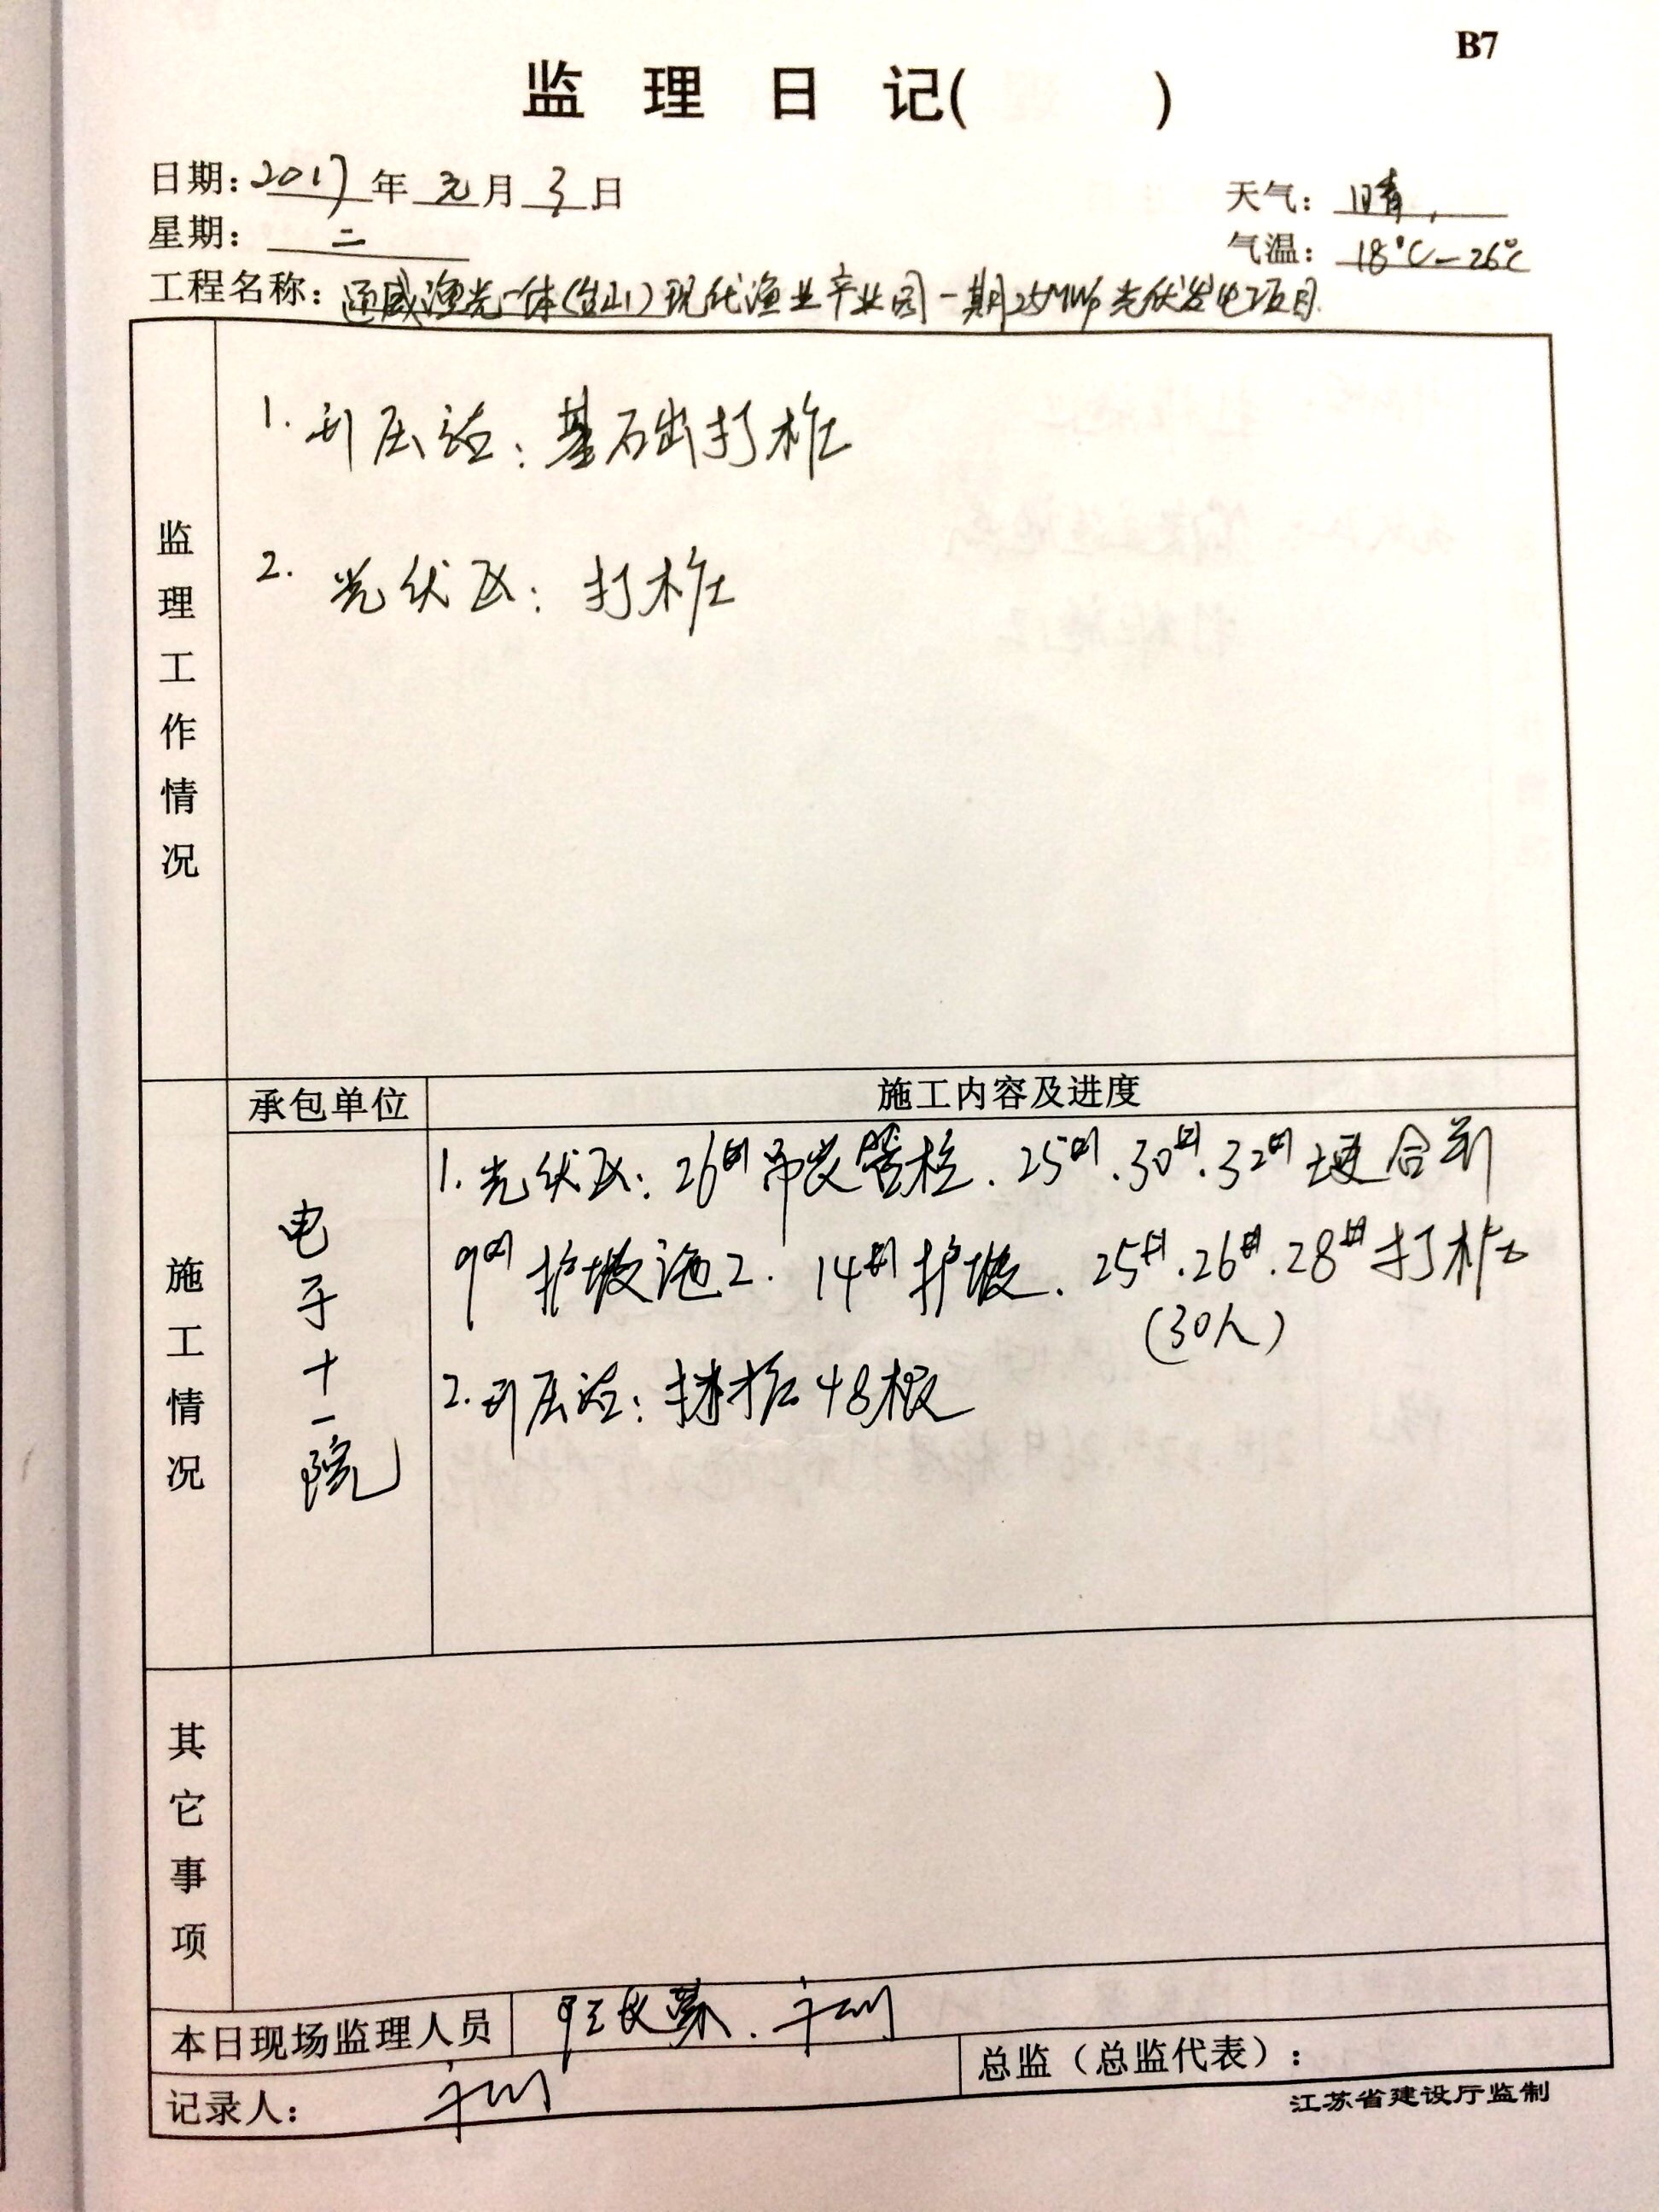 B7
监 理 日 记( )
日期: 2017 年 元 月 3 日
天气: 晴
星期: 二
气温: 18℃-26℃
工程名称: 通威渔光一体(台山)现代渔业产业园一期25MWp光伏发电项目
监理工作情况
1. 升压站: 基础打桩
2. 光伏区: 打桩
施工情况
承包单位
施工内容及进度
电子十一院
1. 光伏区: 26#吊装管桩. 25#.30#.32#埂合
9#护坡施工. 14#护坡. 25#.26#.28#打桩
(30人)
2. 升压站: 桩48根
其它事项
本日现场监理人员
记录人:
总监(总监代表):
江苏省建设厅监制